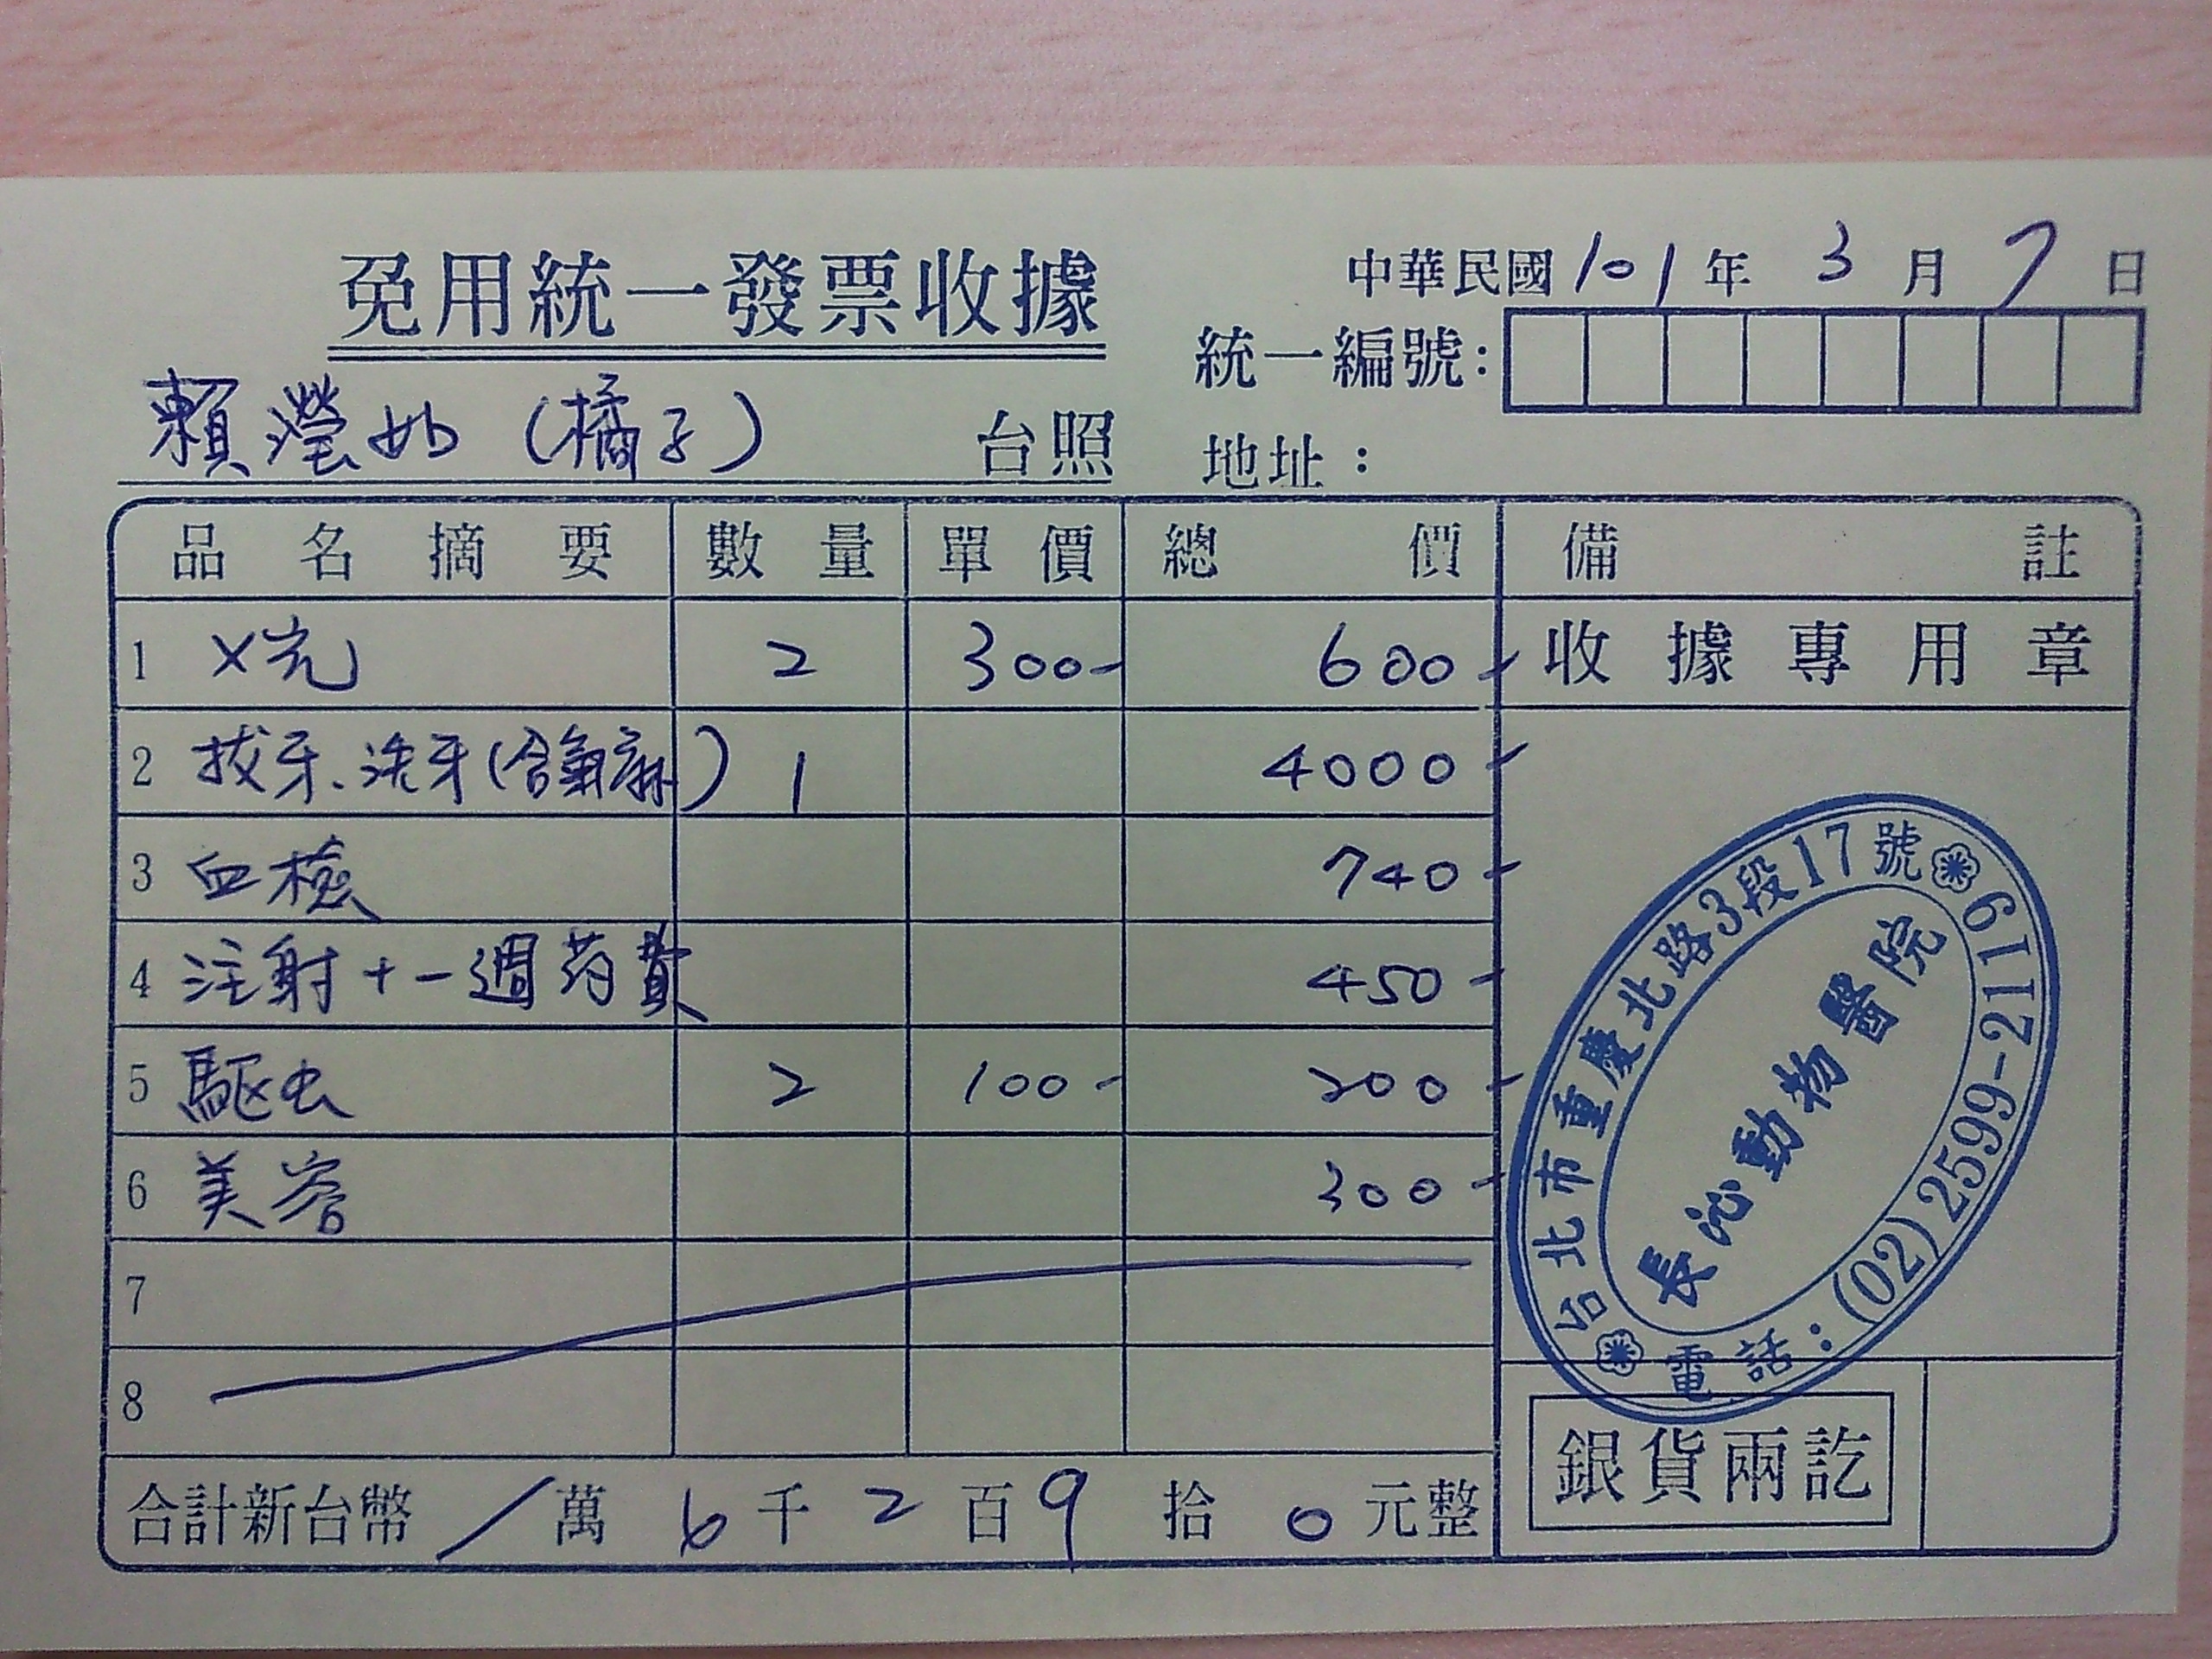 免用統一發票收據
中華民國101年3月7日
統一編號:
賴瀅如(橘子) 台照 地址:
品名摘要 數量 單價 總價 備註
1 X光 2 300- 600- 收據專用章
2 拔牙、洗牙(含氣麻) 1 4000-
3 血檢 740-
4 注射+一週药費 450-
5 驅虫 2 100- 200-
6 美容 300-
7
8
台北市重慶北路3段17號
長沁動物醫院
電話:(02)2599-2119
合計新台幣/萬6千2百9拾0元整 銀貨兩訖